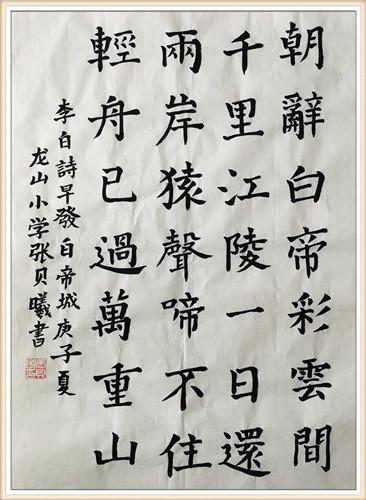 朝辭白帝彩雲間
千里江陵一日還
兩岸猿聲啼不住
輕舟已過萬重山
李白詩早發白帝城庚子夏
龙山小学张贝曦書